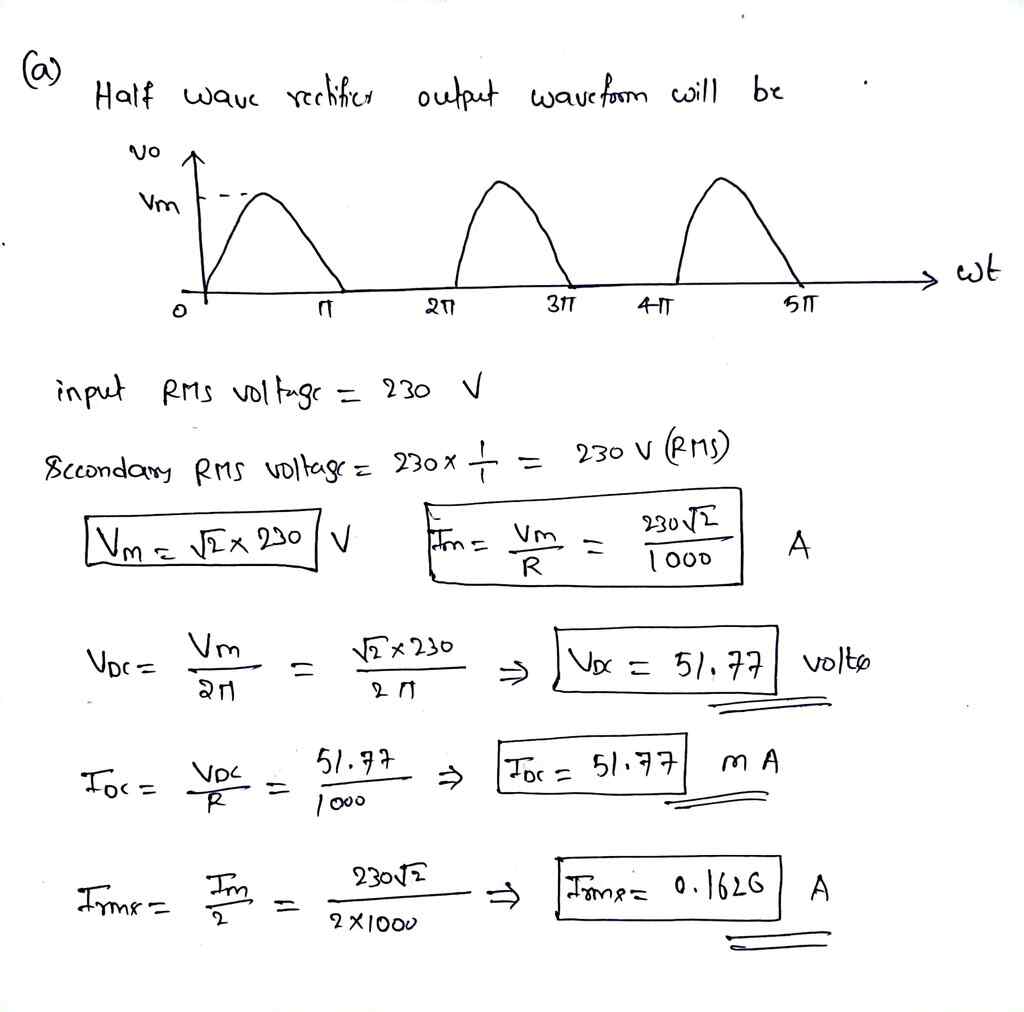 (a)
Half wave rectifier output waveform will be
Vo
Vm
ωt
0 π 2π 3π 4π 5π
input RMS voltage = 230 V
Secondary RMS voltage = 230 x 1/1 = 230 V (RMS)
Vm = √2 x 230 V Im = Vm/R = 230√2/1000 A
VDC = Vm/2π = √2 x 230/2π ⇒ VDC = 51.77 volts
IDC = VDC/R = 51.77/1000 ⇒ IDC = 51.77 mA
Irms = Im/2 = 230√2/2x1000 ⇒ Irms = 0.1626 A